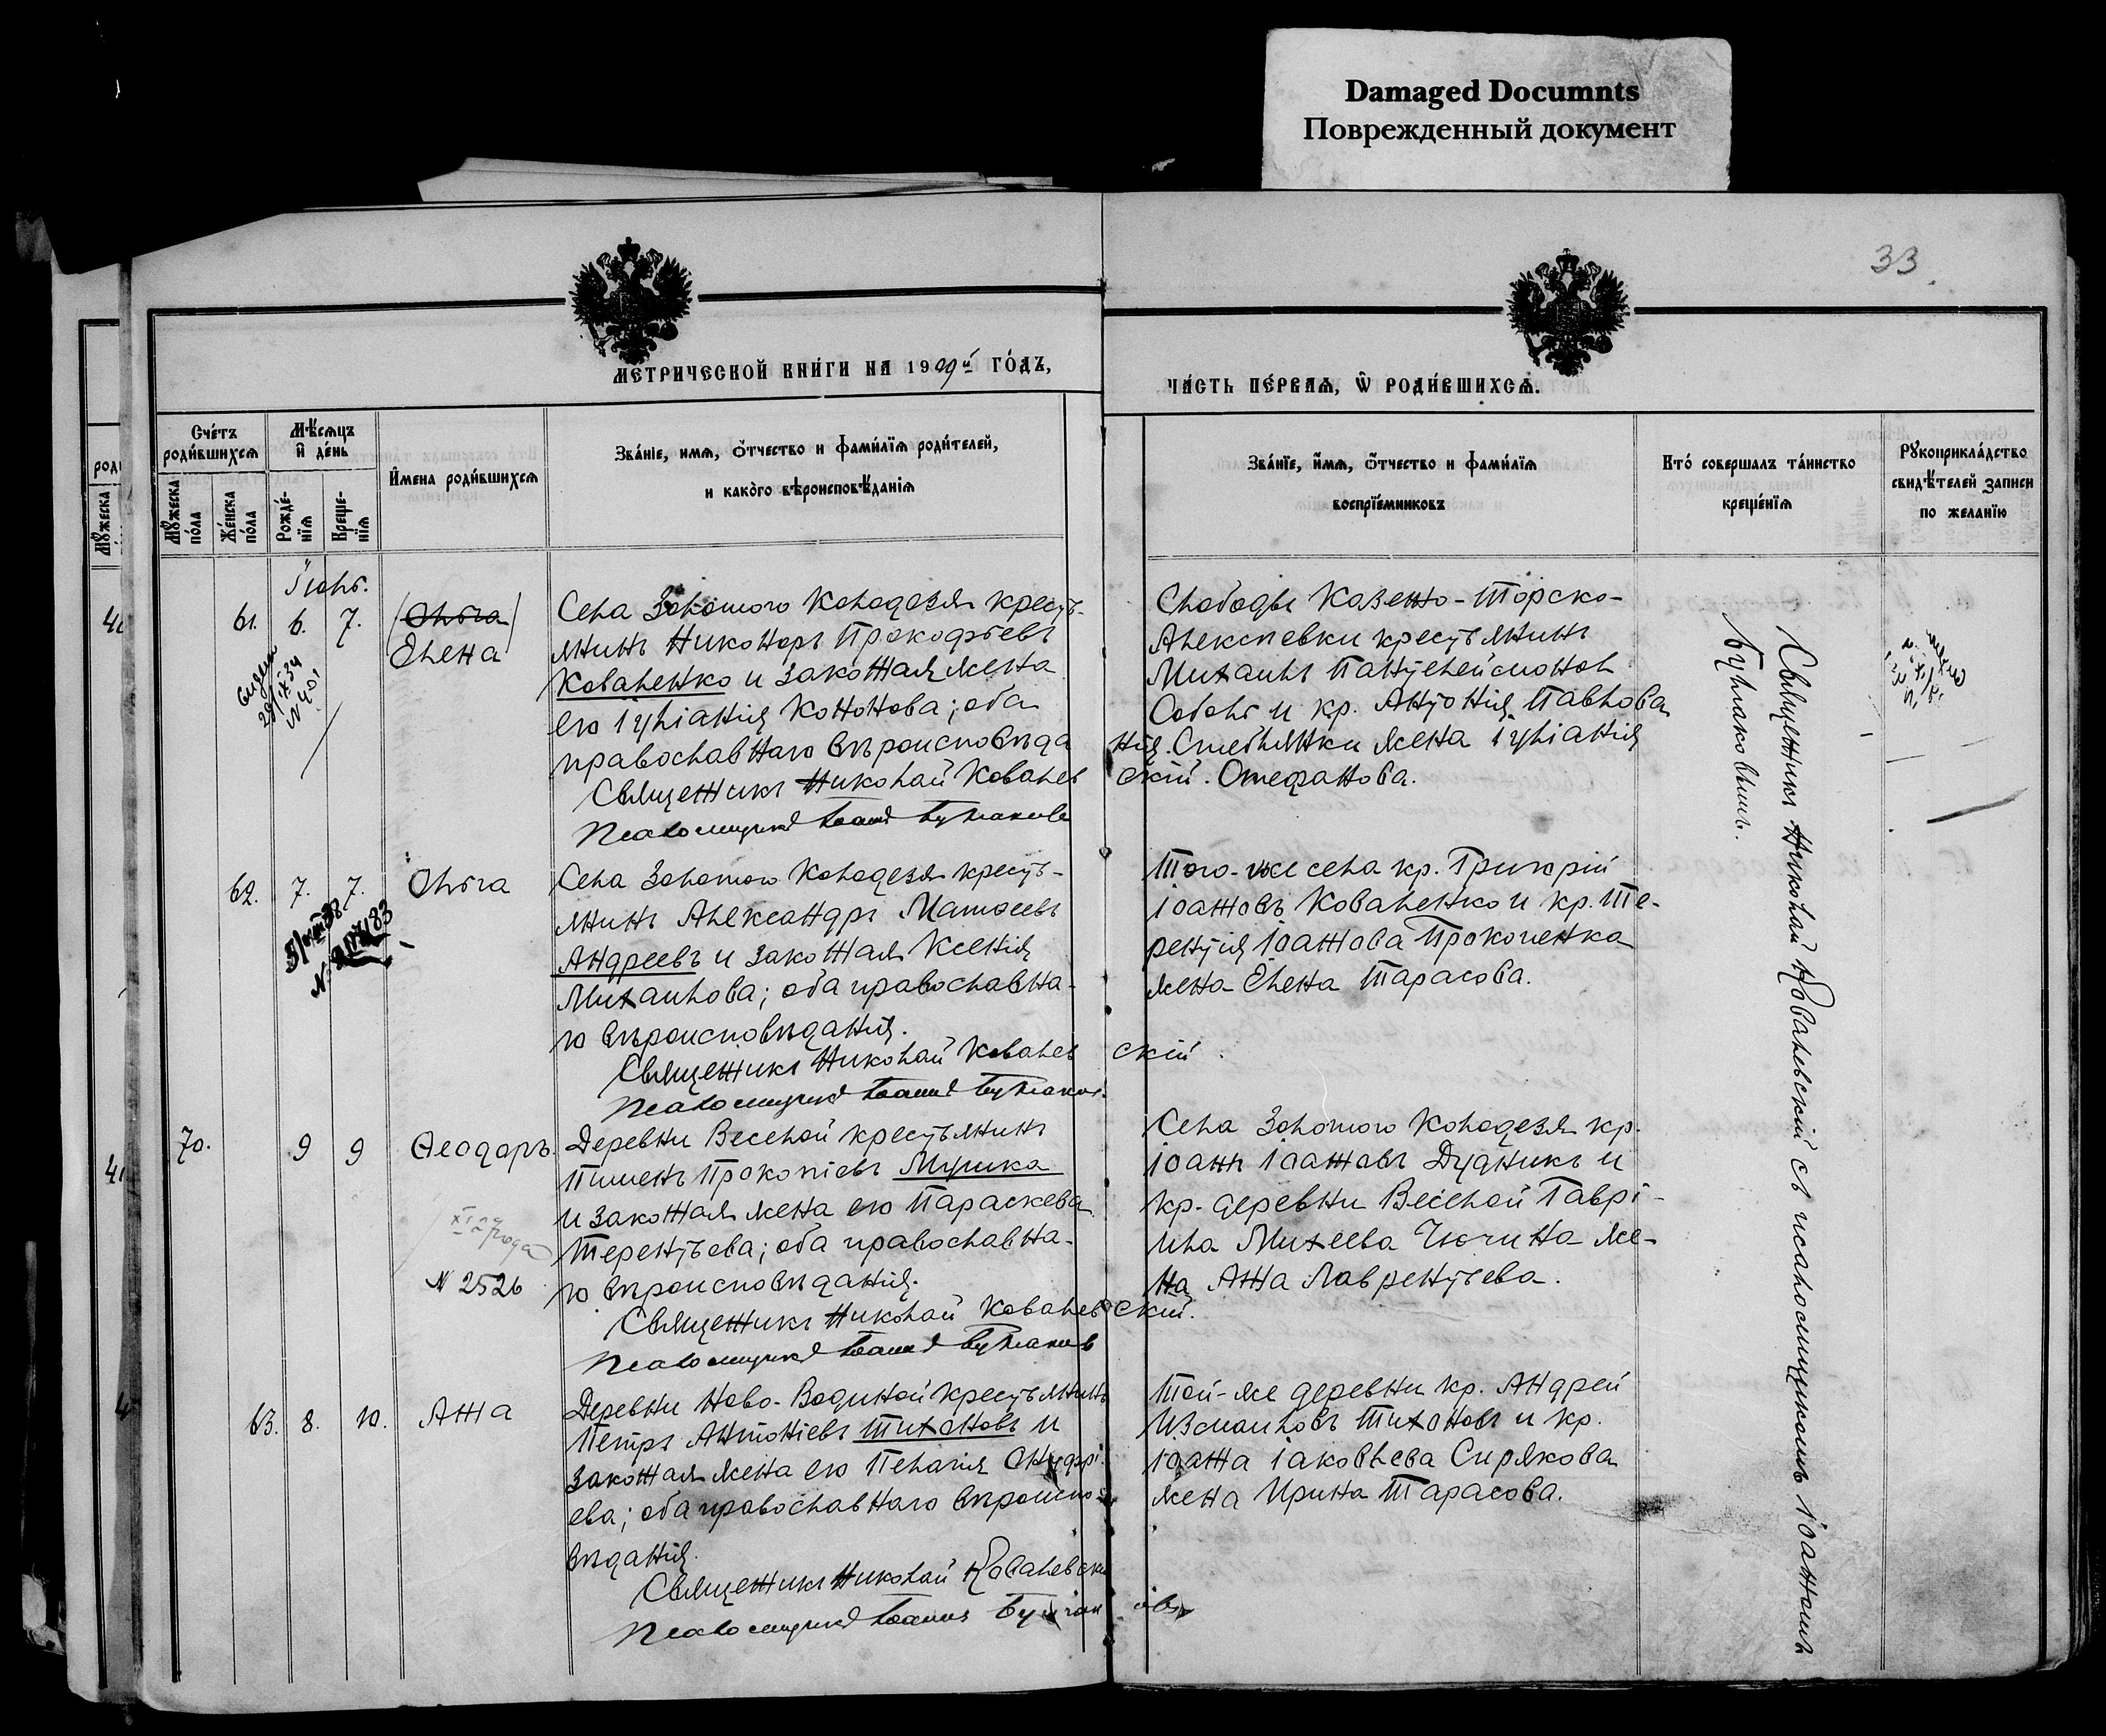 Damaged Documnts
Поврежденный документ
33
МЕТРИЧЕСКОЙ КНИ́ГИ НА 1909й ГО́ДЪ,
ЧА́СТЬ ПЕ́РВАѦ, Ѽ РОДИ́ВШИХСѦ.
Сче́тъ
роди́вшихсѧ
Мѣ́сѧцъ
и̑ де́нь
И҆мена роди́вшихсѧ
Зва́нїе, имѧ, о҆́тчество и фами́лїѧ роди́телей,
и како́го вѣроисповѣ́данїѧ
Мꙋжеска
по́ла
Же́нска
по́ла
Рожде́-
нїѧ
Креще-
нїѧ
Зва́нїе, и҆́мѧ, о҆́тчество и фами́лїѧ
воспрїе́мниковъ
Кто́ совершалъ та́инство
креще́нїѧ
Рꙋкоприкла́дство
свидѣ́телей записи
по жела́нїю
Іюнь.
61. 6. 7. (Ольга)
Елена
Села Золотого Колодезя кресть-
янинъ Никоноръ Прокофьевъ
Коваленко и законная жена
его Іуліанія Кононова; оба
православнаго вѣроисповѣда
нія.
Священникъ Николай Ковалев
скій.
Псаломщикъ Іоаннъ Булгаковъ
№ 401
Слободы Казенно-Торско-
Алексѣевки крестьянинъ
Михаилъ Пантелеймонов
Соболь и кр. Антонія Павлова
жена Іуліанія
Стефанова.
62. 7. 7. Ольга
Села Золотого Колодезя кресть-
янинъ Александръ Матѳеевъ
Андреевъ и законная Ксенія
Михаилова; оба православна-
го вѣроисповѣданія.
Священникъ Николай Ковалев
скій
Псаломщикъ Іоаннъ Булгаков.
Того-же села кр. Григорій
Іоанновъ Коваленко и кр. Те-
рентія Іоаннова Прокопенка
жена Елена Тарасова.
70. 9 9 Ѳеодоръ.
№ 2526
Деревни Веселой крестьянинъ
Пименъ Прокопіевъ Мушка
и законная жена его Параскева
Терентьева; оба православна-
го вѣроисповѣданія.
Священникъ Николай Ковалев
скій.
Псаломщикъ Іоаннъ Булгаков
Села Золотого Колодезя кр.
Іоаннъ Іоанновъ Дудникъ и
кр. деревни Веселой Гаврі-
ила Михеева Чючина же-
на Анна Лаврентьева.
63. 8. 10. Анна
Деревни Ново-Водяной крестьянинъ
Петръ Антоніевъ Тихоновъ и
законная жена его Пелагія Онуфрі-
ева; оба православнаго вѣроиспо-
вѣданія.
Священникъ Николай Ковалевскі
Псаломщикъ Іоаннъ Булгаковъ
Той-же деревни кр. Андрей
Измаиловъ Тихоновъ и кр.
Іоанна Іаковлева Сирякова
жена Ирина Тарасова.
Священникъ Николай Ковалевскій съ псаломщикомъ Іоанномъ
Булгаковымъ.